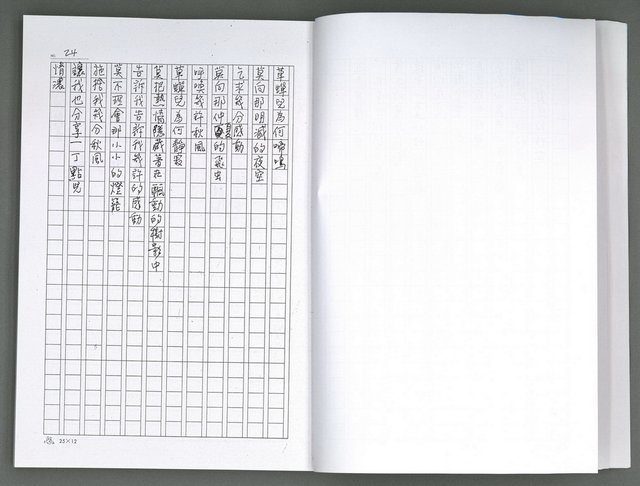 No. 24
草蟬兒為何啼鳴
莫向那明滅的夜空
乞求幾分感動
莫向那仲夏的飛虫
呼喚幾許秋風
草蟬兒為何靜寂
莫把熱情隱藏著在飄動的樹影中
告訴我告訴我幾許的感動
莫不理會那小小的燈籠
施捨我幾分秋風
讓我也分享一丁點兒
情濃
25×12